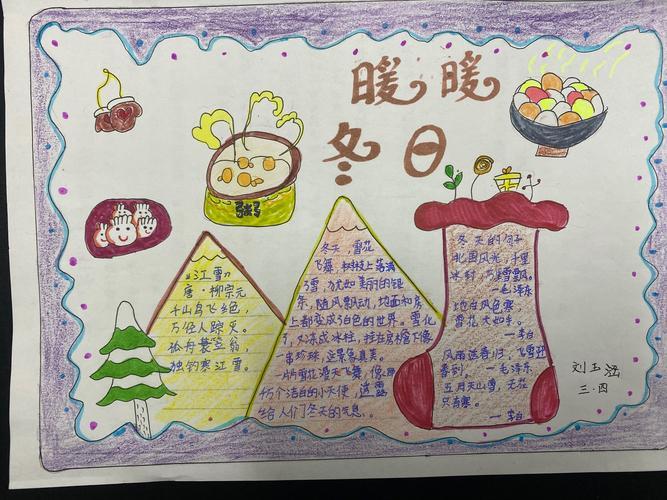 暖暖
冬日
《江雪》
唐·柳宗元
千山鸟飞绝,
万径人踪灭。
孤舟蓑笠翁
独钓寒江雪。
冬天 雪花
飞舞 树枝上落满
了雪,犹如美丽的银
条,随风飘动,地面和房
上都变成了白色的世界。雪化
了,又冻成冰柱,挂在房檐下像
串珍珠,这景象真美。
一片片雪花漫天飞舞,像
万个洁白的小天使,
给人们冬天的气息。
冬天的句子
北国风光,千里
冰封,万里雪飘。
—毛泽东
地白风色寒,
雪花大如手。
—李白
风雨送春归,飞雪迎
春到。—毛泽东
五月天山雪,无花
只有寒。
—李白
刘玉涵
三·四